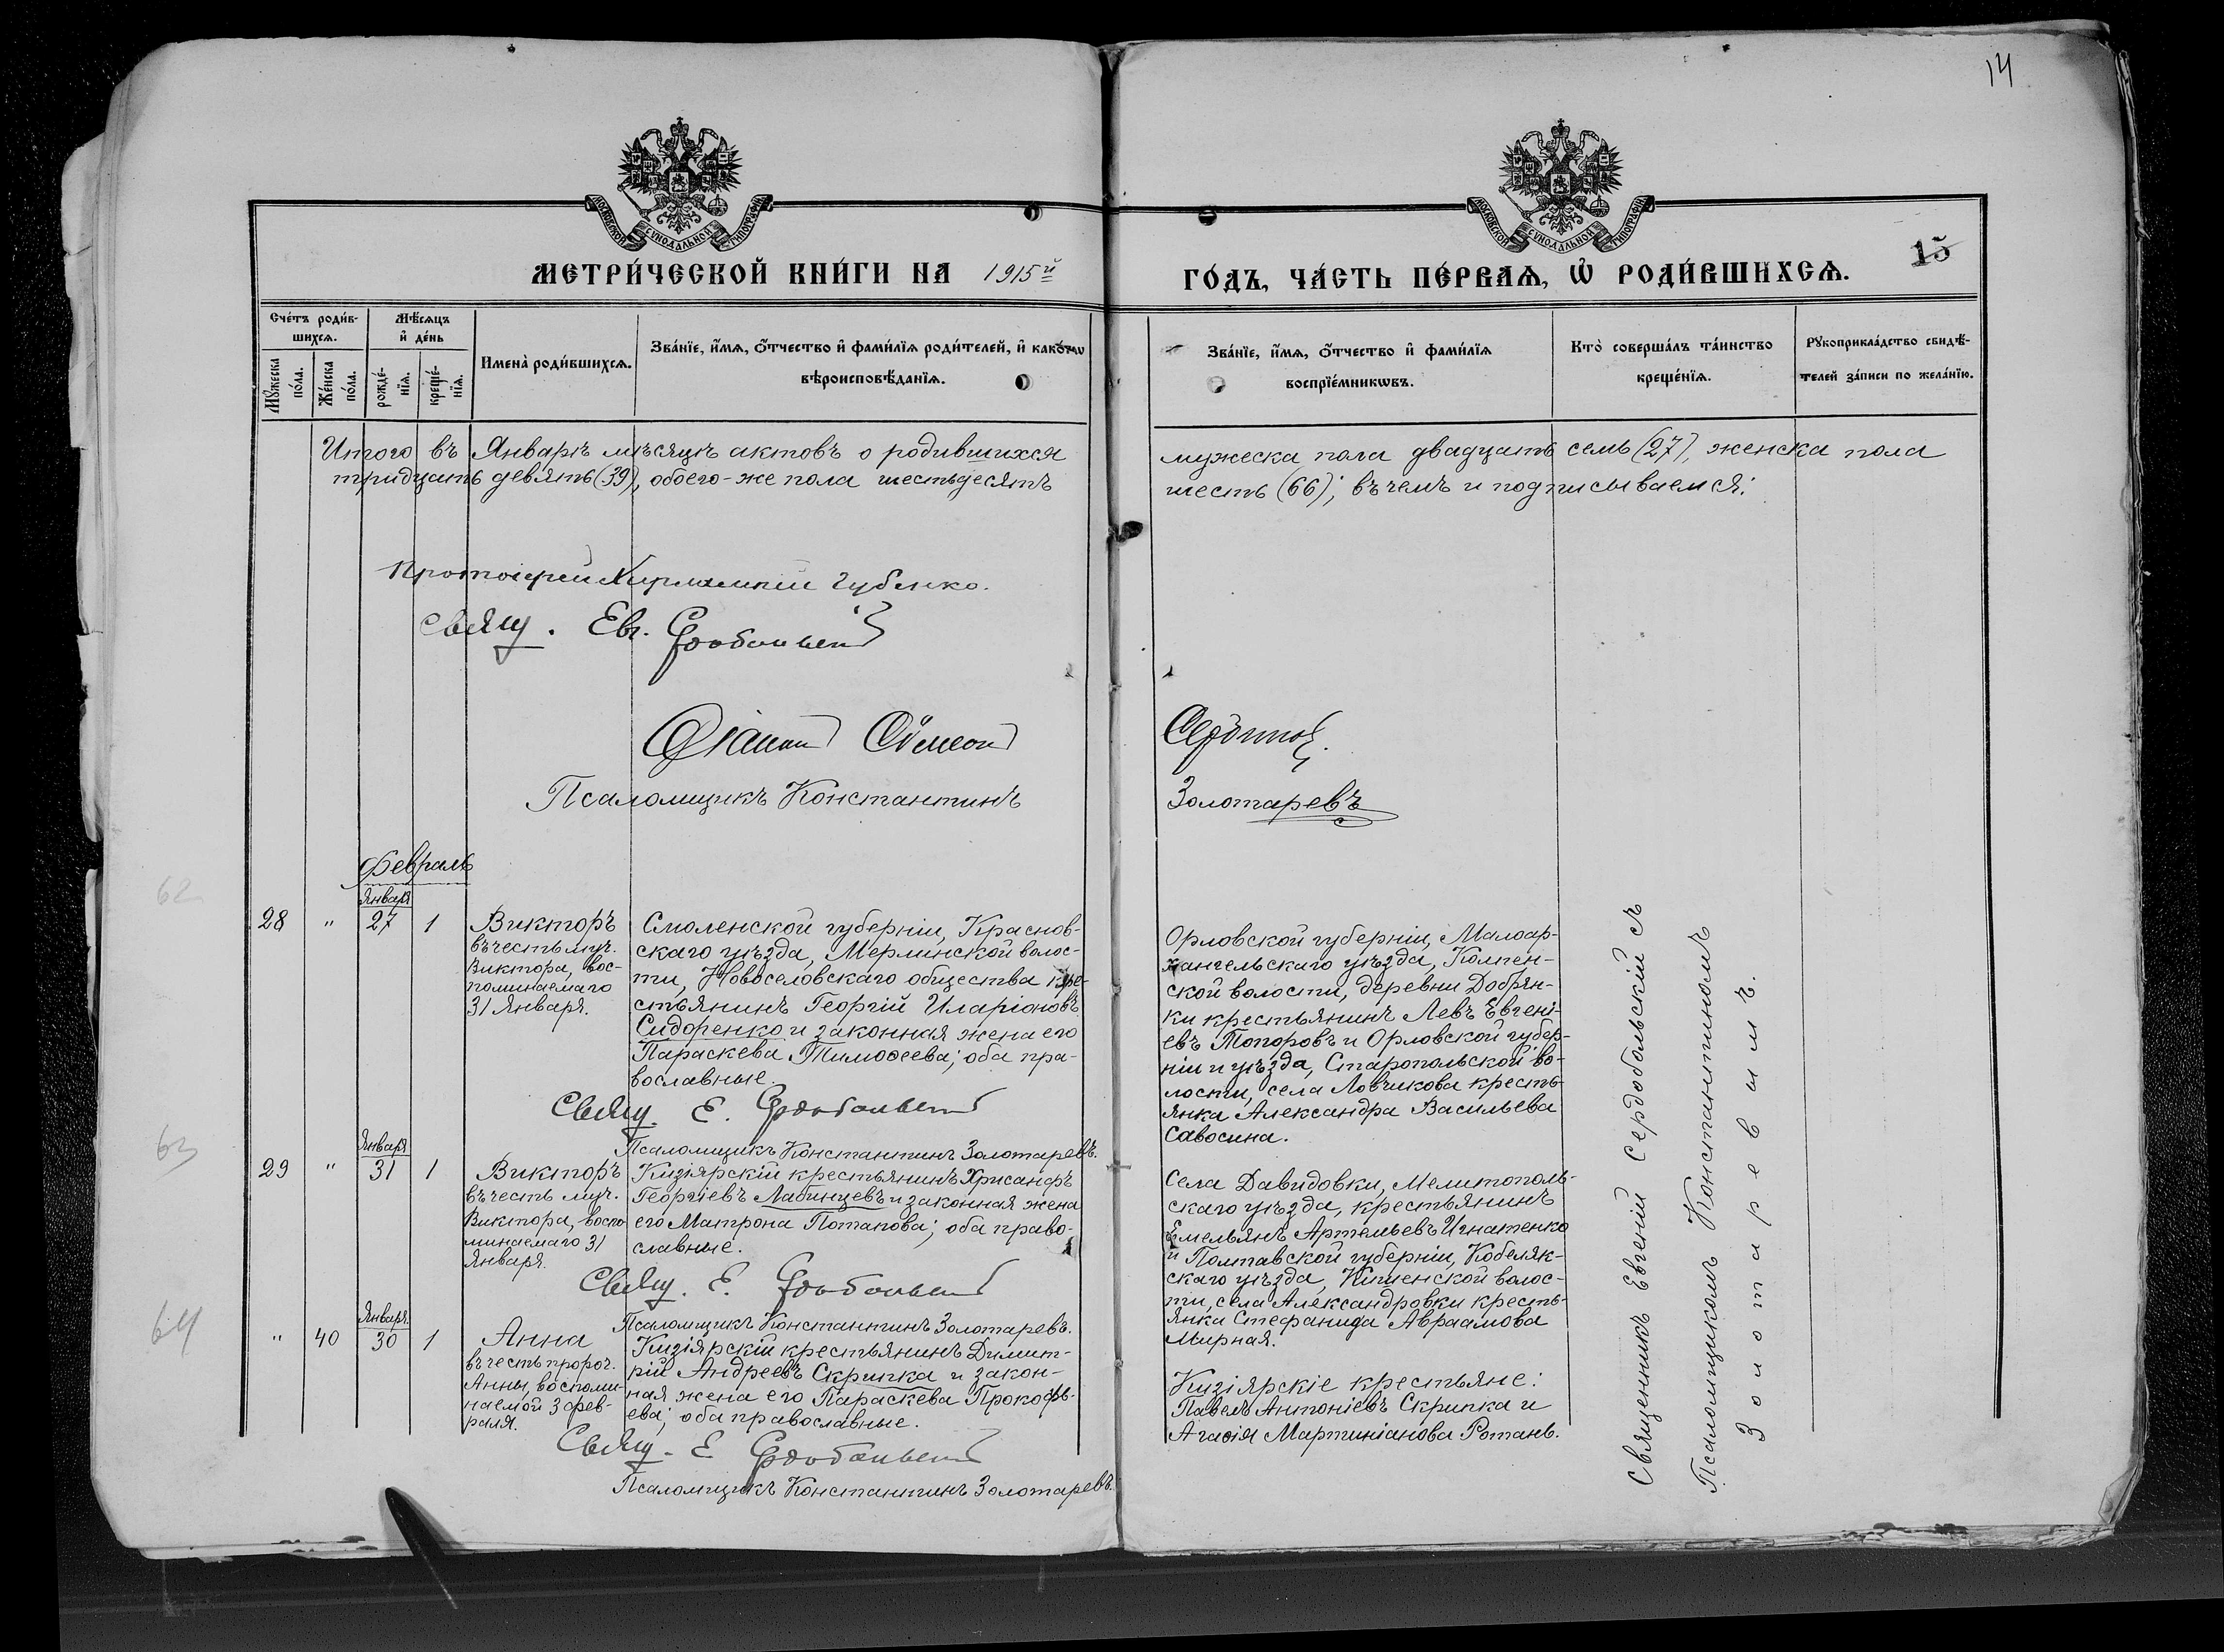 14
МОСКОВСКОЙ СѴНОДАЛЬНОЙ ТИПОГРАФІИ
МОСКОВСКОЙ СѴНОДАЛЬНОЙ ТИПОГРАФІИ
МЕТРИ́ЧЕСКОЙ КНИ́ГИ НА 1915й
ГО́ДЪ, ЧА́СТЬ ПЕ́РВАѦ, Ѽ РОДИ́ВШИХСѦ.
15
Сче́тъ роди́в-
шихсѧ.
Мꙋ́жеска
по́ла.
Же́нска
по́ла.
Мѣ́сѧцъ
и҆ де́нь
рожде́-
нїѧ.
креще́-
нїѧ.
Имена̀ роди́вшихсѧ.
Зва́нїе, и҆́мѧ, ѻ҆́тчество и҆ фами́лїѧ роди́телей, и҆ како́гѡ
вѣроисповѣ́данїѧ.
Зва́нїе, и҆́мѧ, ѻ҆́тчество и҆ фами́лїѧ
воспрїе́мникѡвъ.
Кто̀ соверша́лъ та́инство
креще́нїѧ.
Рꙋкоприкла́дство свидѣ́-
телей за́писи по жела́нїю.
Итого въ Январѣ мѣсяцѣ актовъ о родившихся
тридцать девять (39), обоего-же пола шестьдесятъ
мужеска пола двадцать семь (27), женска пола
шесть (66); въ чемъ и подписываемся:
Протоіерей Губенко.
Свящ. Евг. Сердобольскій
Діаконъ Симеонъ
Сердюковъ.
Псаломщикъ Константинъ
Золотаревъ
Февраль
62
Января
28 " 27 1
Викторъ
въ честь муч.
Виктора, вос-
поминаемаго
31 Января.
Смоленской губерніи, Краснов-
скаго уѣзда, Мерлинской волос-
ти, Новоселовскаго общества кре-
стьянинъ Георгій Иларіоновъ
Сидоренко и законная жена его
Параскева Тимоѳеева; оба пра-
вославные.
Свящ. Е. Сердобольскій
Псаломщикъ Константинъ Золотаревъ.
Орловской губерніи, Малоар-
хангельскаго уѣзда,
ской волости, деревни Добрын-
ки крестьянинъ Левъ Евгені-
евъ Топоровъ и Орловской губер-
ніи и уѣзда, Старопольской во-
лости, села Ловчикова кресть-
янка Александра Васильева
Савосина.
63
Января
29 " 31 1
Викторъ
въ честь муч.
Виктора, воспо-
минаемаго 31
Января.
Кизіярскій крестьянинъ Хрисанфъ
Георгіевъ Лабинцевъ и законная жена
его Матрона Потапова; оба право-
славные.
Свящ. Е. Сердобольскій
Псаломщикъ Константинъ Золотаревъ.
Села Давидовки, Мелитополь-
скаго уѣзда, крестьянинъ
Емельянъ Артемьевъ Игнатенко
и Полтавской губерніи, Кобеляк-
скаго уѣзда, Кишенской волос-
ти, села Александровки кресть-
янка Стефанида Авраамова
Мирная.
64
Января.
" 40 30 1
Анна
въ честь пророч.
Анны, воспоми-
наемой 3 фев-
раля.
Кизіярскій крестьянинъ Димит-
рій Андреевъ Скрипка и закон-
ная жена его Параскева Прокофь-
ева; оба православные.
Свящ. Е Сердобольскій
Псаломщикъ Константинъ Золотаревъ.
Кизіярскіе крестьяне:
Павелъ Антоніевъ Скрипка и
Агаѳія Мартиніанова Ротань.
Священникъ Евгеній Сердобольскій съ
Псаломщикомъ Константиномъ
Золотаревымъ.